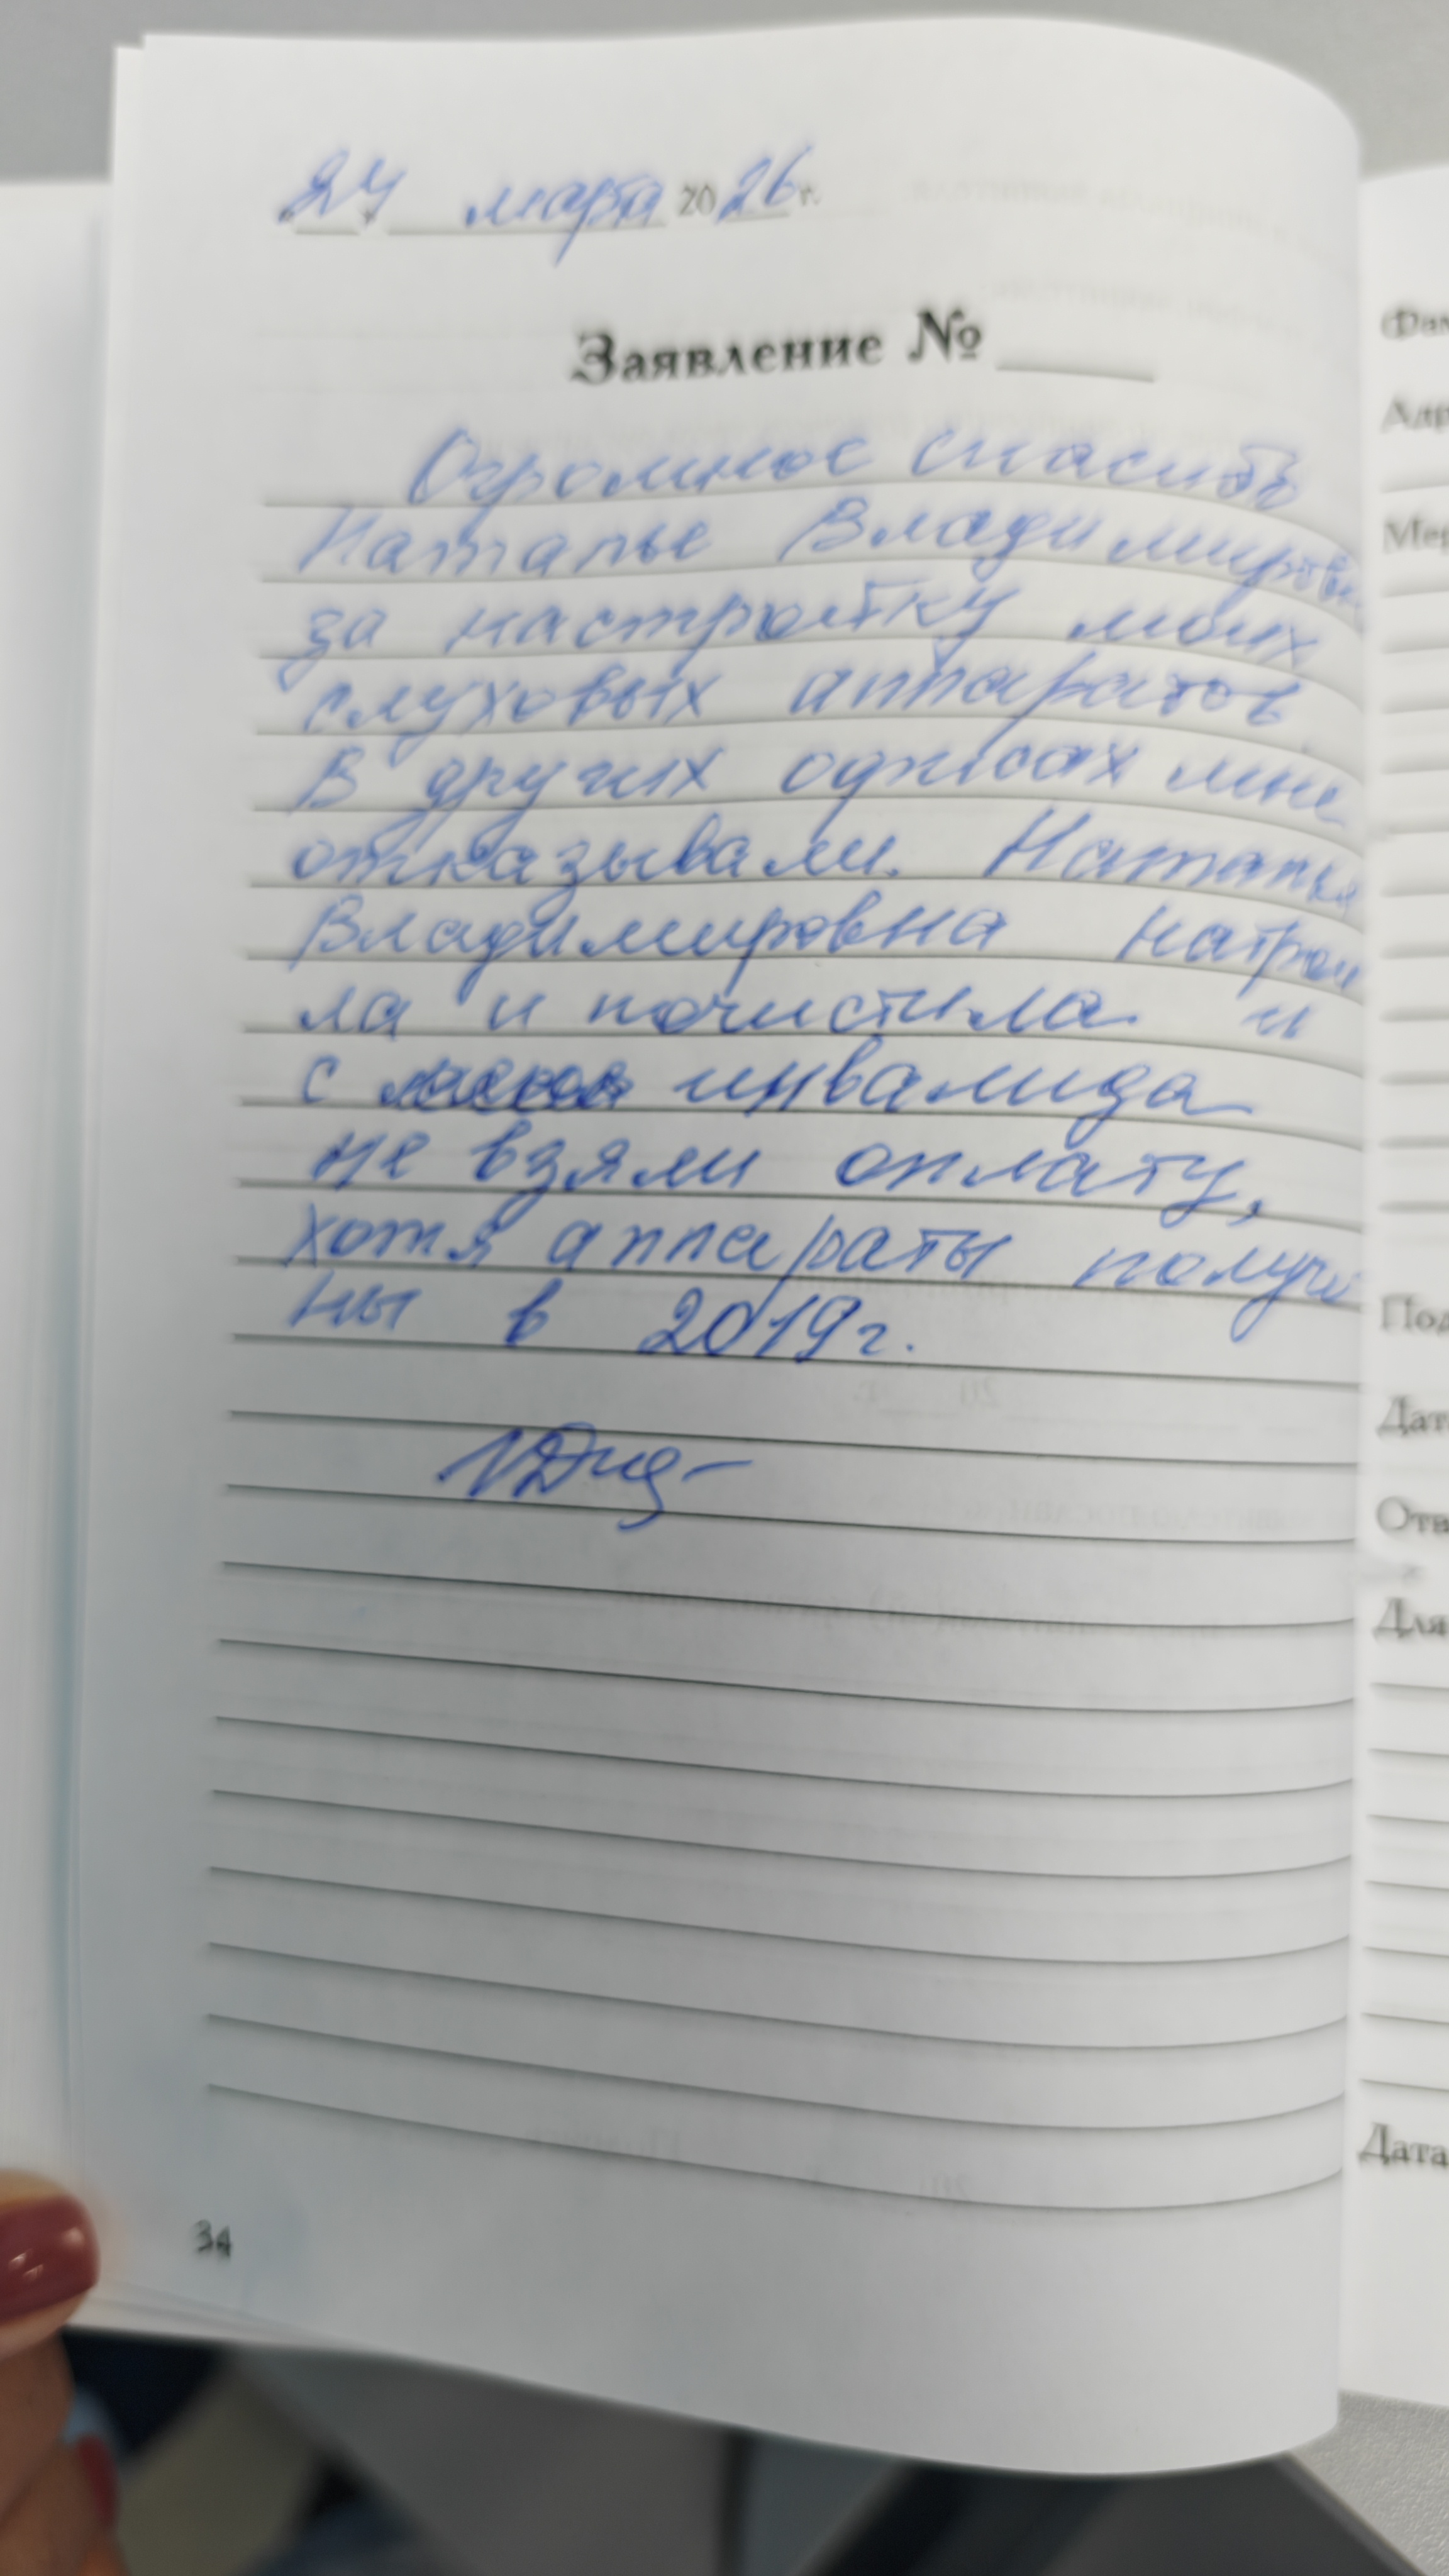 "24" марта 2026 г.
Заявление № ____
Огромное спасибо
Наталье Владимировне
за настройку моих
слуховых аппаратов.
В других офисах мне
отказывали. Наталья
Владимировна настрои
ла и почистила и
с инвалида
не взяли оплату,
хотя аппараты получе
ны в 2019г.
34
Адр
Дата